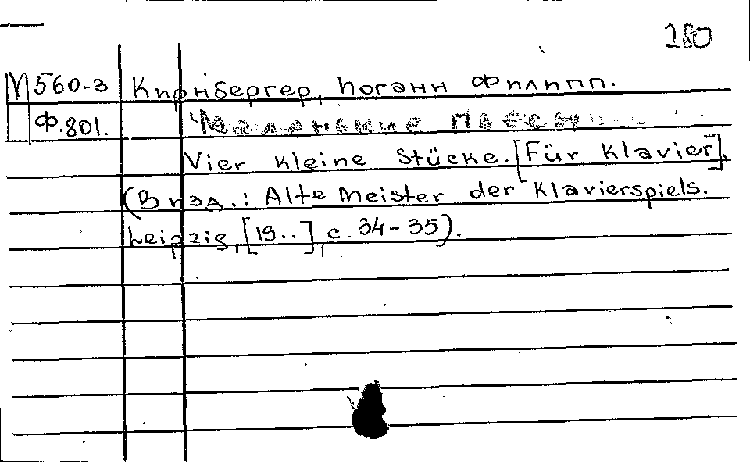 280
М560-3 Кирнбергер, Иоганн Филипп.
Ф.801. Маленькие пьесы
Vier kleine Stücke. [Für Klavier].
(В изд.: Alte Meister der Klavierspiels.
Leipzig, [19..], с. 34-35).